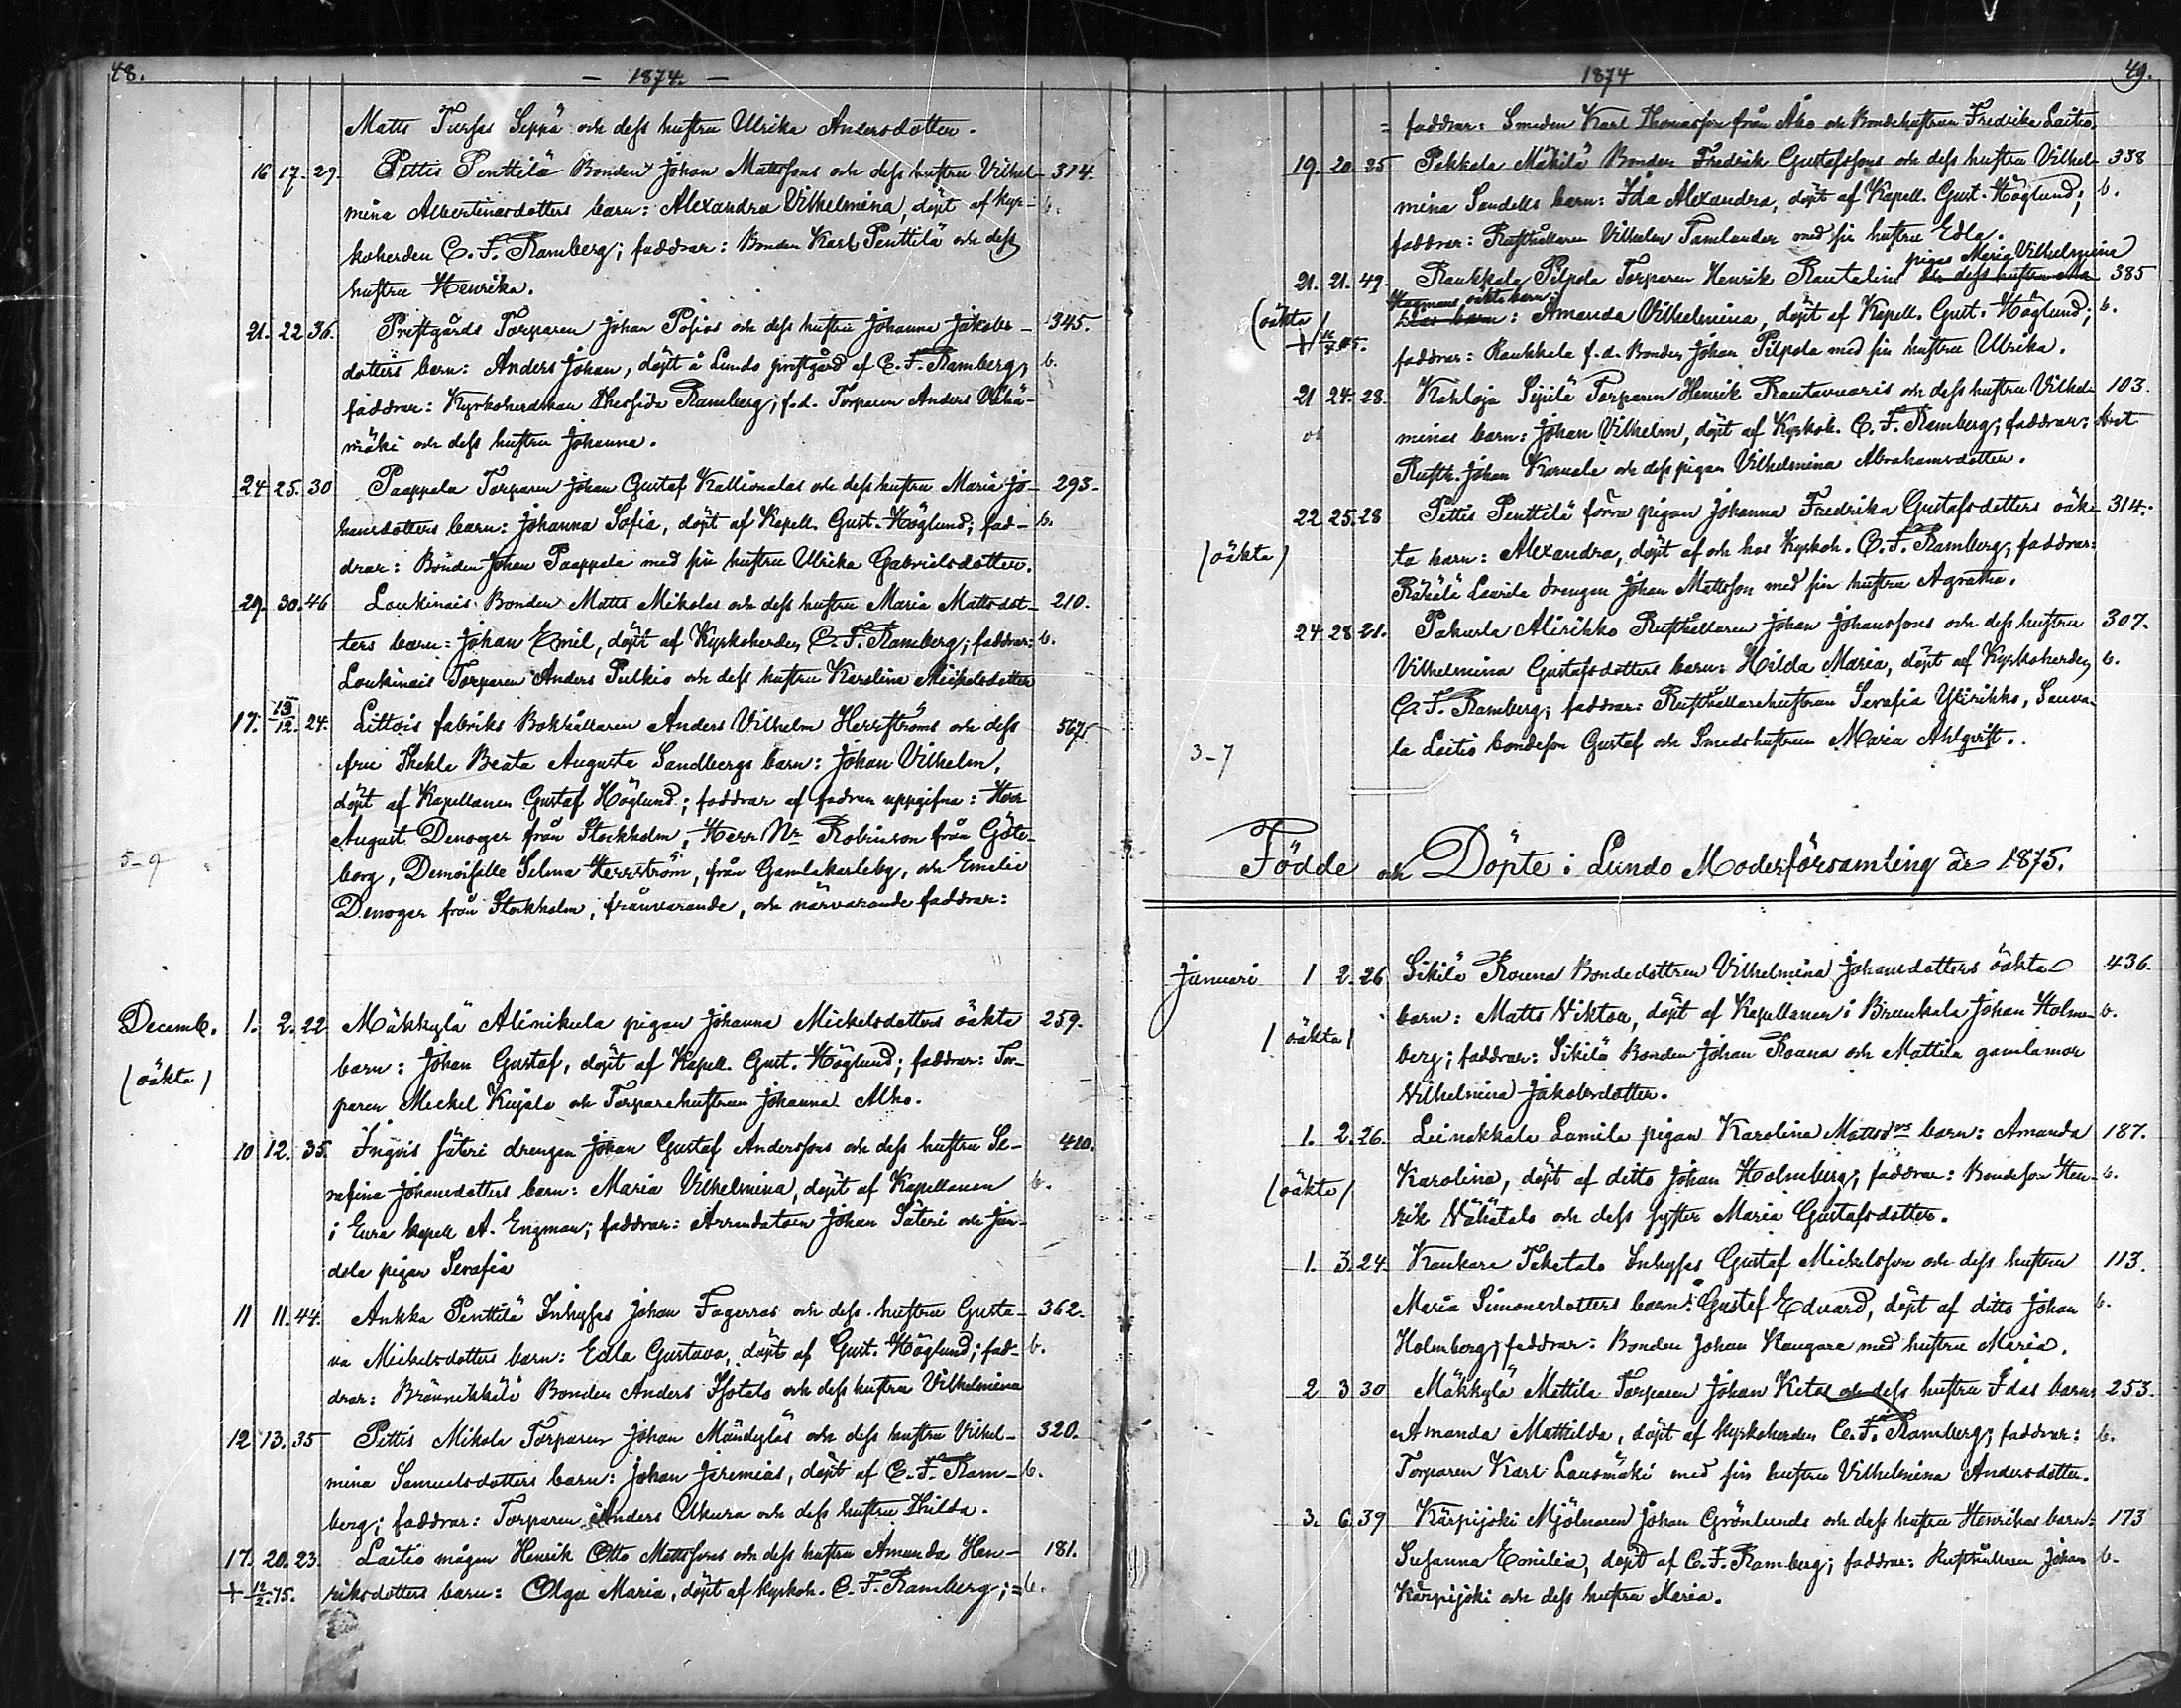 48.
— 1874. —
Matts Tursas Seppä och dess hustru Ulrika Andersdotter.
16 17. 29. Pettis Penttilä Bonden Johan Mattssons och dess hustru Vilhel- 314.
mina Albertinasdotters barn: Alexandra Vilhelmina, döpt af Kyr- b.
koherden C. F. Ramberg; faddrar: Bonden Karl Penttilä och dess
hustru Henrika.
21. 22 36. Prestgårds Torparen Johan Posios och dess hustru Johanna Jakobs- 345.
dotters barn: Anders Johan, döpt å Lundo prestgård af C. F. Ramberg, b.
faddrar: Kyrkoherdskan Ramberg; f.d. Torparen Anders Vähä-
mäki och dess hustru Johanna.
24 25. 30 Paappala Torparen Johan Gustaf Kallionalas och dess hustru Maria Jo- 293.
hansdotters barn: Johanna Sofia, döpt af Kapell. Gust. Höglund; fad- b.
drar: Bonden Johan Paappala med sin hustru Ulrika Gabrielsdotter.
29. 30. 46 Loukinais Bonden Matts Mikolas och dess hustru Maria Mattsdot- 210.
ters barn: Johan Emil, döpt af Kyrkoherden C. F. Ramberg; faddrar: b.
Loukinais Torparen Anders Pulkio och dess hustru Karolina Mickelsdotter
17. 13/12. 24. Littois fabriks Bokhållaren Anders Vilhelm Herrströms och dess 567.
fru Thekla Beata Augusta Sandbergs barn: Johan Vilhelm,
döpt af Kapellanen Gustaf Höglund; faddrar af fadren uppgifna: Herr
August Denoger från Stockholm, Herr Nr Robinson från Göte-
5-9 borg, Demoiselle Selma Herrström, från Gamlakarleby, och Emilie
Denoger från Stockholm, frånvarande, och närvarande faddrar:
Decemb. 1. 2. 22 Mäkkylä Alinikula pigan Johanna Mickelsdotters oäkta 259.
(oäkta) barn: Johan Gustaf, döpt af Kapell. Gust. Höglund; faddrar: Tor-
paren Mickel Kujala och Torparehustrun Johanna Alho.
10 12. 35. Ingvis Säteri drengen Johan Gustaf Anderssons och dess hustru Se- 410.
rafina Johansdotters barn: Maria Vilhelmina, döpt af Kapellanen b.
i Eura kapell A. Engman; faddrar: Arrendatorn Johan Säteri och Jun-
dola pigan Serafia
11 11. 44. Ankka Penttilä Inhyses Johan Fagerras och dess hustru Gusta- 362.
va Mickelsdotters barn: Edla Gustava, döpt af Gust. Höglund; fad- b.
drar: Brännikkälä Bonden Anders Isotalo och dess hustru Vilhelmina
12 13. 35 Pettis Mikola Torparen Johan Mändyläs och dess hustru Vilhel- 320.
mina Samuelsdotters barn: Johan Jeremias, döpt af C. F. Ram- b.
berg; faddrar: Torparen Anders Ukura och dess hustru Thilda.
17. 20. 23. Laitio mågen Henrik Otto Mattssons och dess hustru Amanda Hen- 181.
+ 12/2. 75. riksdotters barn: Olga Maria, döpt af Kyrkoh. C. F. Ramberg; = b.
1874
49.
= faddrar: Smeden Karl Thomasson från Åbo och Bondehustrun Fredrika Laitio.
19. 20. 25 Pekkala Mäkilä Bonden Fredrik Gustafssons och dess hustru Vilhel- 338
mina Sandells barn: Ida Alexandra, döpt af Kapell. Gust. Höglund; b.
faddrar: Rusthållaren Vilhelm Tamlander med sin hustru Edla.
pigas Maria Vilhelmina
21. 21. 49. Raukkala Pilpola Torparen Henrik Rautalins och dess hustru 385
Hagmans oäkta barn
(oäkta) barn: Amanda Vilhelmina, döpt af Kapell. Gust. Höglund; b.
faddrar: Raukkala f.d. Bonden Johan Pilpola med sin hustru Ulrika.
21 24. 28. Kahloja Sipilä Torparen Henrik Rautavuoris och dess hustru Vilhel- 103.
minas barn: Johan Vilhelm, döpt af Kyrkoh. C. F. Ramberg; faddrar:
Rusth. Johan Karuala och dess pigan Vilhelmina Abrahamsdotter.
22 25. 28 Pettis Penttilä förra pigan Johanna Fredrika Gustafsdotters oäk- 314.
(oäkta) ta barn: Alexandra, döpt af och hos Kyrkoh. C. F. Ramberg, faddrar:
Rähälä Laurila drengen Johan Mattsson med sin hustru Agatha.
24 28 21. Pakurla Alirihko Rusthållaren Johan Johanssons och dess hustru 307.
Vilhelmina Gustafsdotters barn: Hilda Maria, döpt af Kyrkoherden b.
C. F. Ramberg; faddrar: Rusthållarehustrun Serafia Ylirihko, Sauva-
3-7 la Laitio bondeson Gustaf och Smedshustrun Maria Ahlqvist.
Födde och Döpte i Lundo Moderförsamling år 1875.
Januari 1 2. 26 Sikilä Rouna Bondedottren Vilhelmina Johansdotters oäkta 436.
(oäkta) barn: Matts Viktor, döpt af Kapellanen i Brunkala Johan Holm- b.
berg; faddrar: Sikilä Bonden Johan Rouna och Mattila gamlamor
Vilhelmina Jakobsdotter.
1. 2. 26. Leinakkala Lamila pigan Karolina Mattsdrs barn: Amanda 187.
(oäkta) Karolina, döpt af ditto Johan Holmberg; faddrar: Bondeson Hen- b.
rik Vähätalo och dess syster Maria Gustafsdotter.
1. 3. 24. Kaukare Taketalo Inhyses Gustaf Mickelsson och dess hustru 113.
Maria Simonsdotters barn: Gustaf Edvard, döpt af ditto Johan b.
Holmberg; faddrar: Bonden Johan Kaugare med hustru Maria.
2 3 30 Mäkkylä Mattila Torparen Johan Ketos och dess hustru Idas barn 253.
Amanda Mathilda, döpt af Kyrkoherden C. F. Ramberg; faddrar: b.
Torparen Karl Lausmäki med sin hustru Vilhelmina Andersdotter.
3. 6. 39 Kärpijoki Mjölnaren Johan Grönlunds och dess hustru Henrikas barn: 173
Susanna Emilia, döpt af C. F. Ramberg; faddrar: Rusthållaren Johan b.
Kärpijoki och dess hustru Maria.